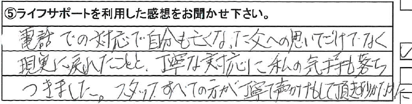 ⑤ライフサポートを利用した感想をお聞かせ下さい。
電話での対応で自分も亡くなった父への思いだけでなく
現実に戻れたことと、丁寧な対応に私の気持も落ち
つきました。スタッフすべての方が丁寧で声かけもして頂き助かりました